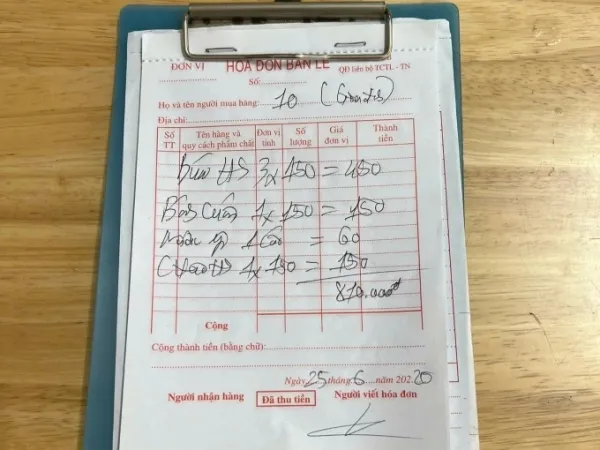 ĐƠN VỊ HÓA ĐƠN BÁN LẺ QĐ liên bộ TCTL - TN
Số:
Họ và tên người mua hàng: 10
Địa chỉ:
Số TT Tên hàng và quy cách phẩm chất Đơn vị tính Số lượng Giá đơn vị Thành tiền
Bún HS 3 x 150 = 450
Cuốn 1 x 150 = 150
1 = 60
Cháo HS 1 x 150 = 150
810.000đ
Cộng
Cộng thành tiền (bằng chữ):
Ngày 25 tháng 6 năm 202 20
Người nhận hàng Đã thu tiền Người viết hóa đơn